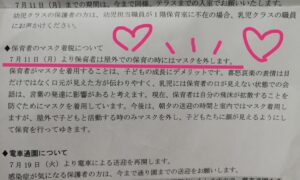 7月11日（月）までの期間は、今まで同様、テラスまでの入室でお願いいたします。
幼児クラスの保護者の方は、幼児担当職員が1階保育室に不在の場合、乳児クラスの職員
にお声かけください。
◆保育者のマスク着脱について
7月11日（月）より保育者は屋外での保育の時にはマスクを外します。
保育者がマスクを着用することは、子どもの成長にデメリットです。喜怒哀楽の表情は目
だけではなく口元が見えた方が伝わりやすく、乳児には保育者の口が見えない状態での会
話は、言葉の発達に影響があると考えます。現在、保育者は自分の飛沫が拡散することを
防ぐためにマスクを着用しています。今後は、朝夕の送迎の時間と室内ではマスク着用し
ますが、屋外で子どもと活動する時のみマスクを外し、子どもたちに顔が見えるように
して保育を行ってゆきます。
◆電車通園について
7月19日（火）より電車による送迎を再開します。
感染症が気になる保護者の方は、今まで通り園までの送迎でかまいません。